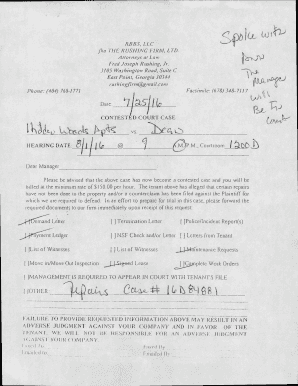 RRRS, LLC
fba THE RUSHING FIRM, LTD.
Attorneys at Law
Fred Joseph Rushing, Jr.
3105 Washington Road, Suite C
East Point, Georgia 30344
rushingfirm@gmail.com
Phone: (404) 768-1771 Facsimile: (678) 348-7517
Spoke with
The
Manager
Will
Be In
Court
Date: 7/25/16
CONTESTED COURT CASE
Hidden Woods Apts vs Drew
HEARING DATE: 8/1/16 @ 9 A.M./P.M., Courtroom: 1200D
Dear Manager:
Please be advised that the above case has now become a contested case and you will be
billed at the minimum rate of $150.00 per hour. The tenant above has alleged that certain repairs
have not been done to the property and/or a counterclaim has been filed against the Plaintiff for
which we are required to defend. In an effort to prepare for trial in this case, please forward the
required documents to our firm immediately upon receipt of this request:
[ ] Demand Letter [ ] Termination Letter [ ] Police/Incident Report(s)
[ ] Payment Ledger [ ] NSF Check and/or Letter [ ] Letters from Tenant
[ ] List of Witnesses [ ] List of Witnesses [ ] Maintenance Requests
[ ] Move in/Move Out Inspection [ ] Signed Lease [ ] Complete Work Orders
[ ] MANAGEMENT IS REQUIRED TO APPEAR IN COURT WITH TENANT'S FILE
[ ] OTHER repairs Case # 16D84881
FAILURE TO PROVIDE REQUESTED INFORMATION ABOVE MAY RESULT IN AN
ADVERSE JUDGMENT AGAINST YOUR COMPANY AND IN FAVOR OF THE
TENANT. WE WILL NOT BE RESPONSIBLE FOR AN ADVERSE JUDGMENT
AGAINST YOUR COMPANY.